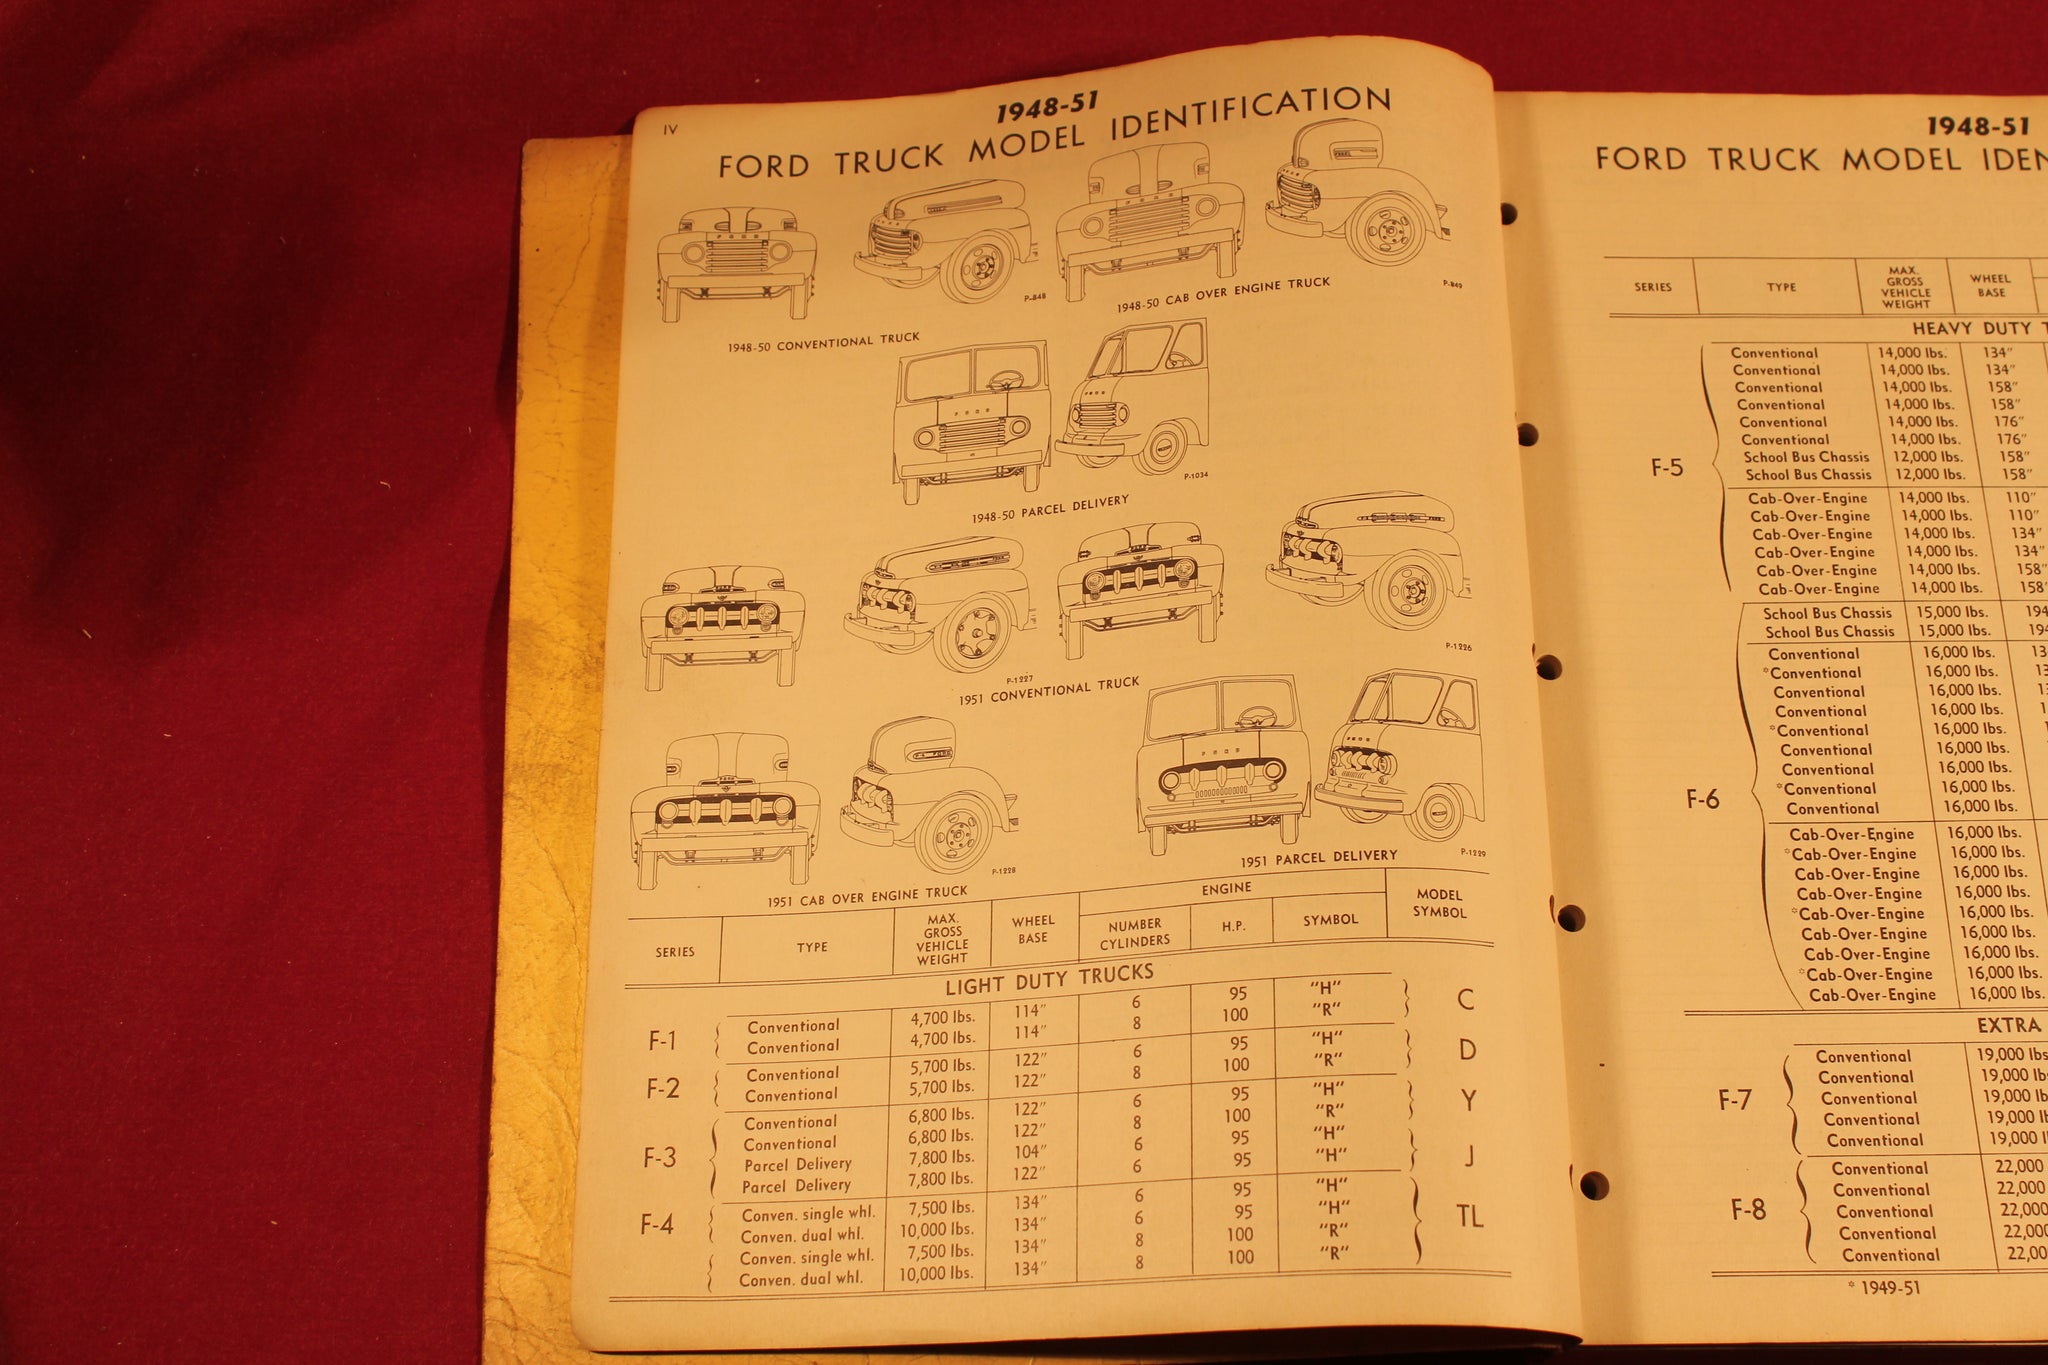 IV
1948-51
FORD TRUCK MODEL IDENTIFICATION
P-848
P-849
1948-50 CONVENTIONAL TRUCK
1948-50 CAB OVER ENGINE TRUCK
P-1034
1948-50 PARCEL DELIVERY
P-1227
P-1226
1951 CONVENTIONAL TRUCK
P-1228
P-1229
1951 CAB OVER ENGINE TRUCK
1951 PARCEL DELIVERY
SERIES TYPE MAX. GROSS VEHICLE WEIGHT WHEEL BASE ENGINE NUMBER CYLINDERS H.P. SYMBOL MODEL SYMBOL
LIGHT DUTY TRUCKS
F-1 Conventional 4,700 lbs. 114" 6 95 "H" C
Conventional 4,700 lbs. 114" 8 100 "R"
F-2 Conventional 5,700 lbs. 122" 6 95 "H" D
Conventional 5,700 lbs. 122" 8 100 "R"
F-3 Conventional 6,800 lbs. 122" 6 95 "H" Y
Conventional 6,800 lbs. 122" 8 100 "R"
Parcel Delivery 7,800 lbs. 104" 6 95 "H" J
Parcel Delivery 7,800 lbs. 122" 6 95 "H"
F-4 Conven. single whl. 7,500 lbs. 134" 6 95 "H" TL
Conven. dual whl. 10,000 lbs. 134" 6 95 "H"
Conven. single whl. 7,500 lbs. 134" 8 100 "R"
Conven. dual whl. 10,000 lbs. 134" 8 100 "R"
1948-51
FORD TRUCK MODEL IDEN
SERIES TYPE MAX. GROSS VEHICLE WEIGHT WHEEL BASE
HEAVY DUTY T
F-5 Conventional 14,000 lbs. 134"
Conventional 14,000 lbs. 134"
Conventional 14,000 lbs. 158"
Conventional 14,000 lbs. 158"
Conventional 14,000 lbs. 176"
Conventional 14,000 lbs. 176"
School Bus Chassis 12,000 lbs. 158"
School Bus Chassis 12,000 lbs. 158"
Cab-Over-Engine 14,000 lbs. 110"
Cab-Over-Engine 14,000 lbs. 110"
Cab-Over-Engine 14,000 lbs. 134"
Cab-Over-Engine 14,000 lbs. 134"
Cab-Over-Engine 14,000 lbs. 158"
Cab-Over-Engine 14,000 lbs. 158"
F-6 School Bus Chassis 15,000 lbs. 194
School Bus Chassis 15,000 lbs. 194
Conventional 16,000 lbs. 13
*Conventional 16,000 lbs. 13
Conventional 16,000 lbs. 1
Conventional 16,000 lbs. 1
*Conventional 16,000 lbs.
Conventional 16,000 lbs.
Conventional 16,000 lbs.
*Conventional 16,000 lbs.
Conventional 16,000 lbs.
Cab-Over-Engine 16,000 lbs.
*Cab-Over-Engine 16,000 lbs.
Cab-Over-Engine 16,000 lbs.
Cab-Over-Engine 16,000 lbs.
*Cab-Over-Engine 16,000 lbs.
Cab-Over-Engine 16,000 lbs.
Cab-Over-Engine 16,000 lbs.
*Cab-Over-Engine 16,000 lbs.
Cab-Over-Engine 16,000 lbs.
EXTRA
F-7 Conventional 19,000 lbs
Conventional 19,000 lb
Conventional 19,000 lb
Conventional 19,000 lb
Conventional 19,000 l
F-8 Conventional 22,000
Conventional 22,000
Conventional 22,000
Conventional 22,000
Conventional 22,00
* 1949-51